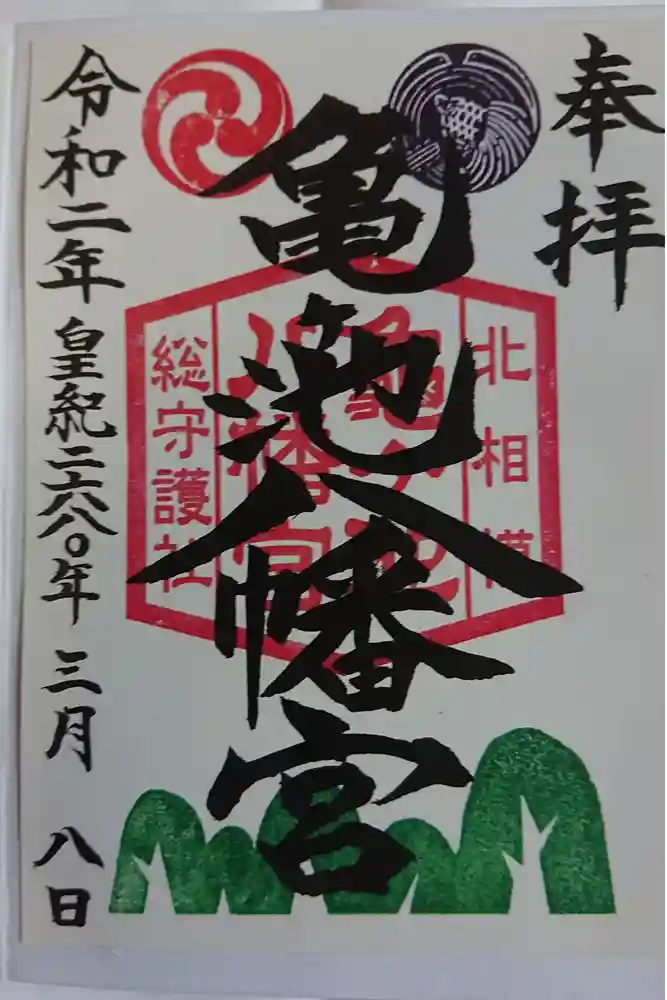 奉拝
亀池八幡宮
北相模
亀ヶ池
八幡宮
総守護社
令和二年皇紀二六八〇年三月八日